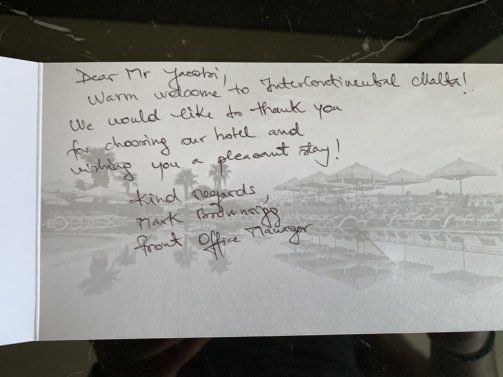 Dear Mr Jacobi,
Warm welcome to InterContinental Malta!
We would like to thank you
for choosing our hotel and
wishing you a pleasant stay!
Kind Regards,
Mark Brownrigg
Front Office Manager